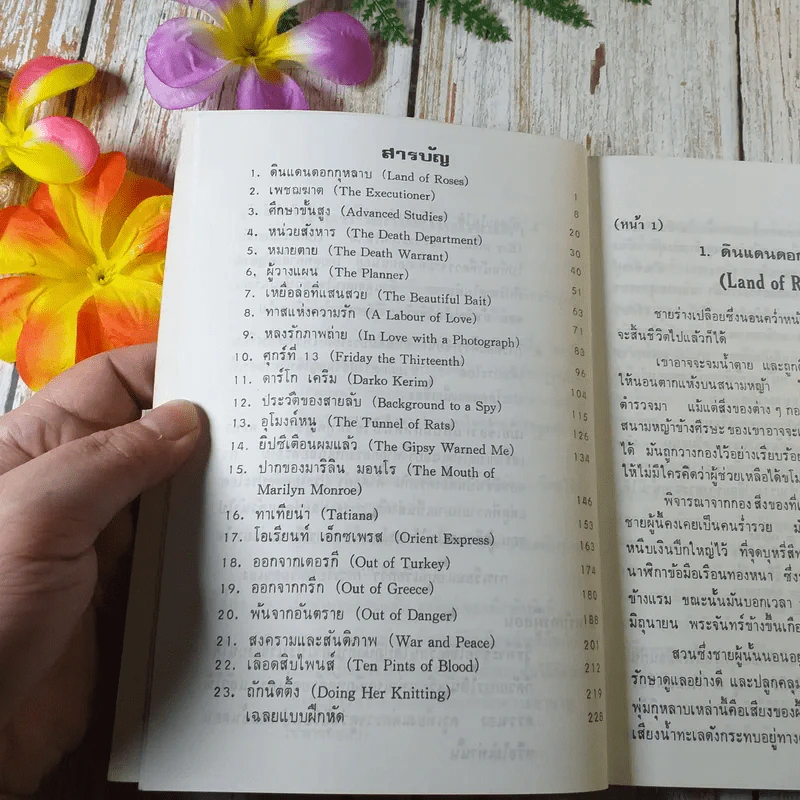 สารบัญ
1. ดินแดนดอกกุหลาบ (Land of Roses) 1
2. เพชฌฆาต (The Executioner) 8
3. ศึกษาขั้นสูง (Advanced Studies) 20
4. หน่วยสังหาร (The Death Department) 30
5. หมายตาย (The Death Warrant) 40
6. ผู้วางแผน (The Planner) 51
7. เหยื่อล่อที่แสนสวย (The Beautiful Bait) 63
8. ทาสแห่งความรัก (A Labour of Love) 71
9. หลงรักภาพถ่าย (In Love with a Photograph) 83
10. ศุกร์ที่ 13 (Friday the Thirteenth) 96
11. ดาร์โก เคริม (Darko Kerim) 104
12. ประวัติของสายลับ (Background to a Spy) 115
13. อุโมงค์หนู (The Tunnel of Rats) 126
14. ยิปซีเตือนผมแล้ว (The Gipsy Warned Me) 134
15. ปากของมาริลิน มอนโร (The Mouth of
Marilyn Monroe) 146
16. ทาเทียน่า (Tatiana) 153
17. โอเรียนท์ เอ็กซเพรส (Orient Express) 163
18. ออกจากเตอรกี (Out of Turkey) 174
19. ออกจากกรีก (Out of Greece) 180
20. พ้นจากอันตราย (Out of Danger) 188
21. สงครามและสันติภาพ (War and Peace) 201
22. เลือดสิบไพนส์ (Ten Pints of Blood) 212
23. ถักนิตติ้ง (Doing Her Knitting) 219
เฉลยแบบฝึกหัด 228
(หน้า 1)
1. ดินแดนดอก
(Land of R
ชายร่างเปลือยซึ่งนอนคว่ำหน้
จะสิ้นชีวิตไปแล้วก็ได้
เขาอาจจะจมน้ำตาย และถูก
ให้นอนตากแห้งบนสนามหญ้า
ตำรวจมา แม้แต่สิ่งของต่าง ๆ กอ
สนามหญ้าข้างศีรษะ ของเขาอาจจะ
ได้ มันถูกวางกองไว้อย่างเรียบร้อย
ให้ไม่มีใครคิดว่าผู้ช่วยเหลือได้ขโ
พิจารณาจากกอง สิ่งของที่
ชายผู้นี้คงเคยเป็นคนร่ำรวย
หนีบเงินปึกใหญ่ไว้ ที่จุดบุหรี่สี
นาฬิกาข้อมือเรือนทองหนา ซึ่ง
ข้างแรม ขณะนั้นมันบอกเวลา
มิถุนายน พระจันทร์ข้างขึ้นเกือ
สวนซึ่งชายผู้นั้นนอนอยู่
รักษาดูแลอย่างดี และปลูกคลุม
พุ่มกุหลาบเหล่านี้คือเสียงของผึ้
เสียงน้ำทะเลดังกระทบอยู่ทาง